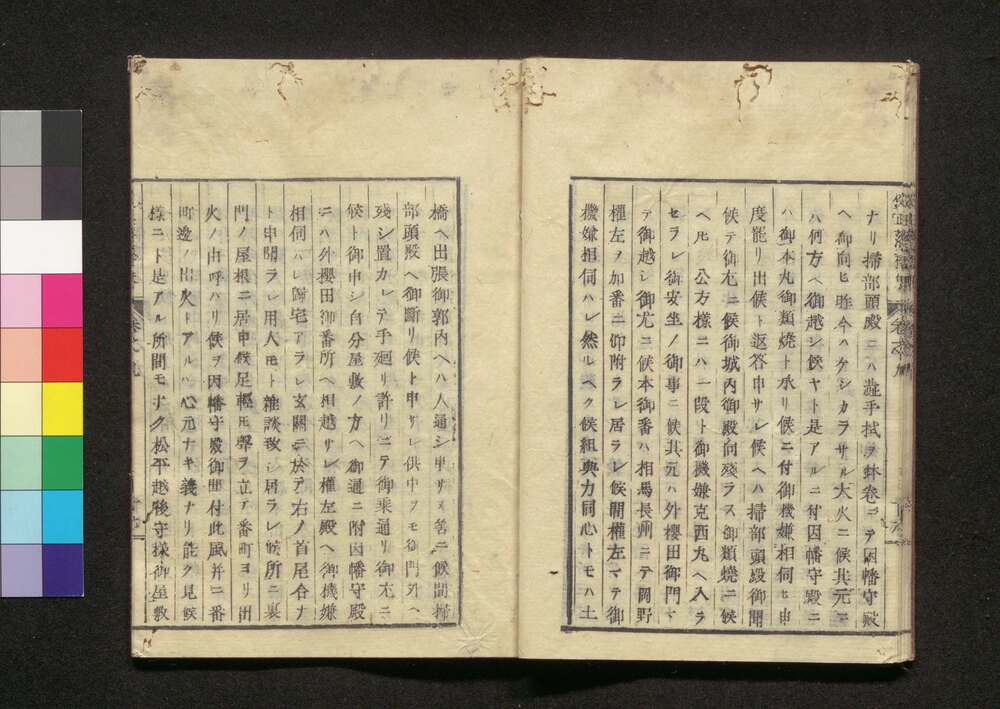 ナリ掃部頭殿ニハ澁手拭ヲ鉢卷ニテ因幡守殿
ヘ御向ヒ昨今ハケシカラサル大火ニ候其元ニ
ハ何方ヘ御越シ候ヤト是アルニ付因幡守殿ニ
ハ御本丸御類燒ト承リ候ニ付御機嫌相伺ヒ申
度罷リ出候ト返答申サレ候ヘハ掃部頭殿御聞
候テ御尤ニ候御城内御殿向殘ラス御類燒ニ候
ヘ𪜈公方樣ニハ一段ト御機嫌克西丸ヘ入ラ
セラレ御安坐ノ御事ニ候其元ハ外櫻田御門マ
テ御越シ御尤ニ候本御番ハ相馬長州ニテ岡野
權左ヲ加番ニ仰附ラレ居ラレ候間權左マテ御
機嫌相伺ハレ然ルヘク候組與力同心トモハ土
橋ヘ出張御郭内ヘハ人通シ申サヌ筈ニ候間掃
部頭殿ヘ御斷リ候ト申サレ供中ヲモ御門外ヘ
殘シ置カレテ手廻リ許リニテ御乘通リ御尤ニ
候ト御申シ自分屋敷ノ方ヘ御通ニ附因幡守殿
ニハ外櫻田御番所ヘ相越サレ權左殿ヘ御機嫌
相伺ハレ歸宅アラレ玄關ニ於テ右ノ首尾合ナ
ト申聞ラレ用人モト雜談致シ居ラレ候所ニ裏
門ノ屋根ニ居申候足輕𪜈聲ヲ立テ番町ヨリ出
火ノ由呼ハリ候ヲ因幡守殿御聞付此風并ニ番
町邊ノ出火トアルハ心元ナキ義ナリ能ク見候
樣ニト是アル所間モナク松平越後守樣御屋敷